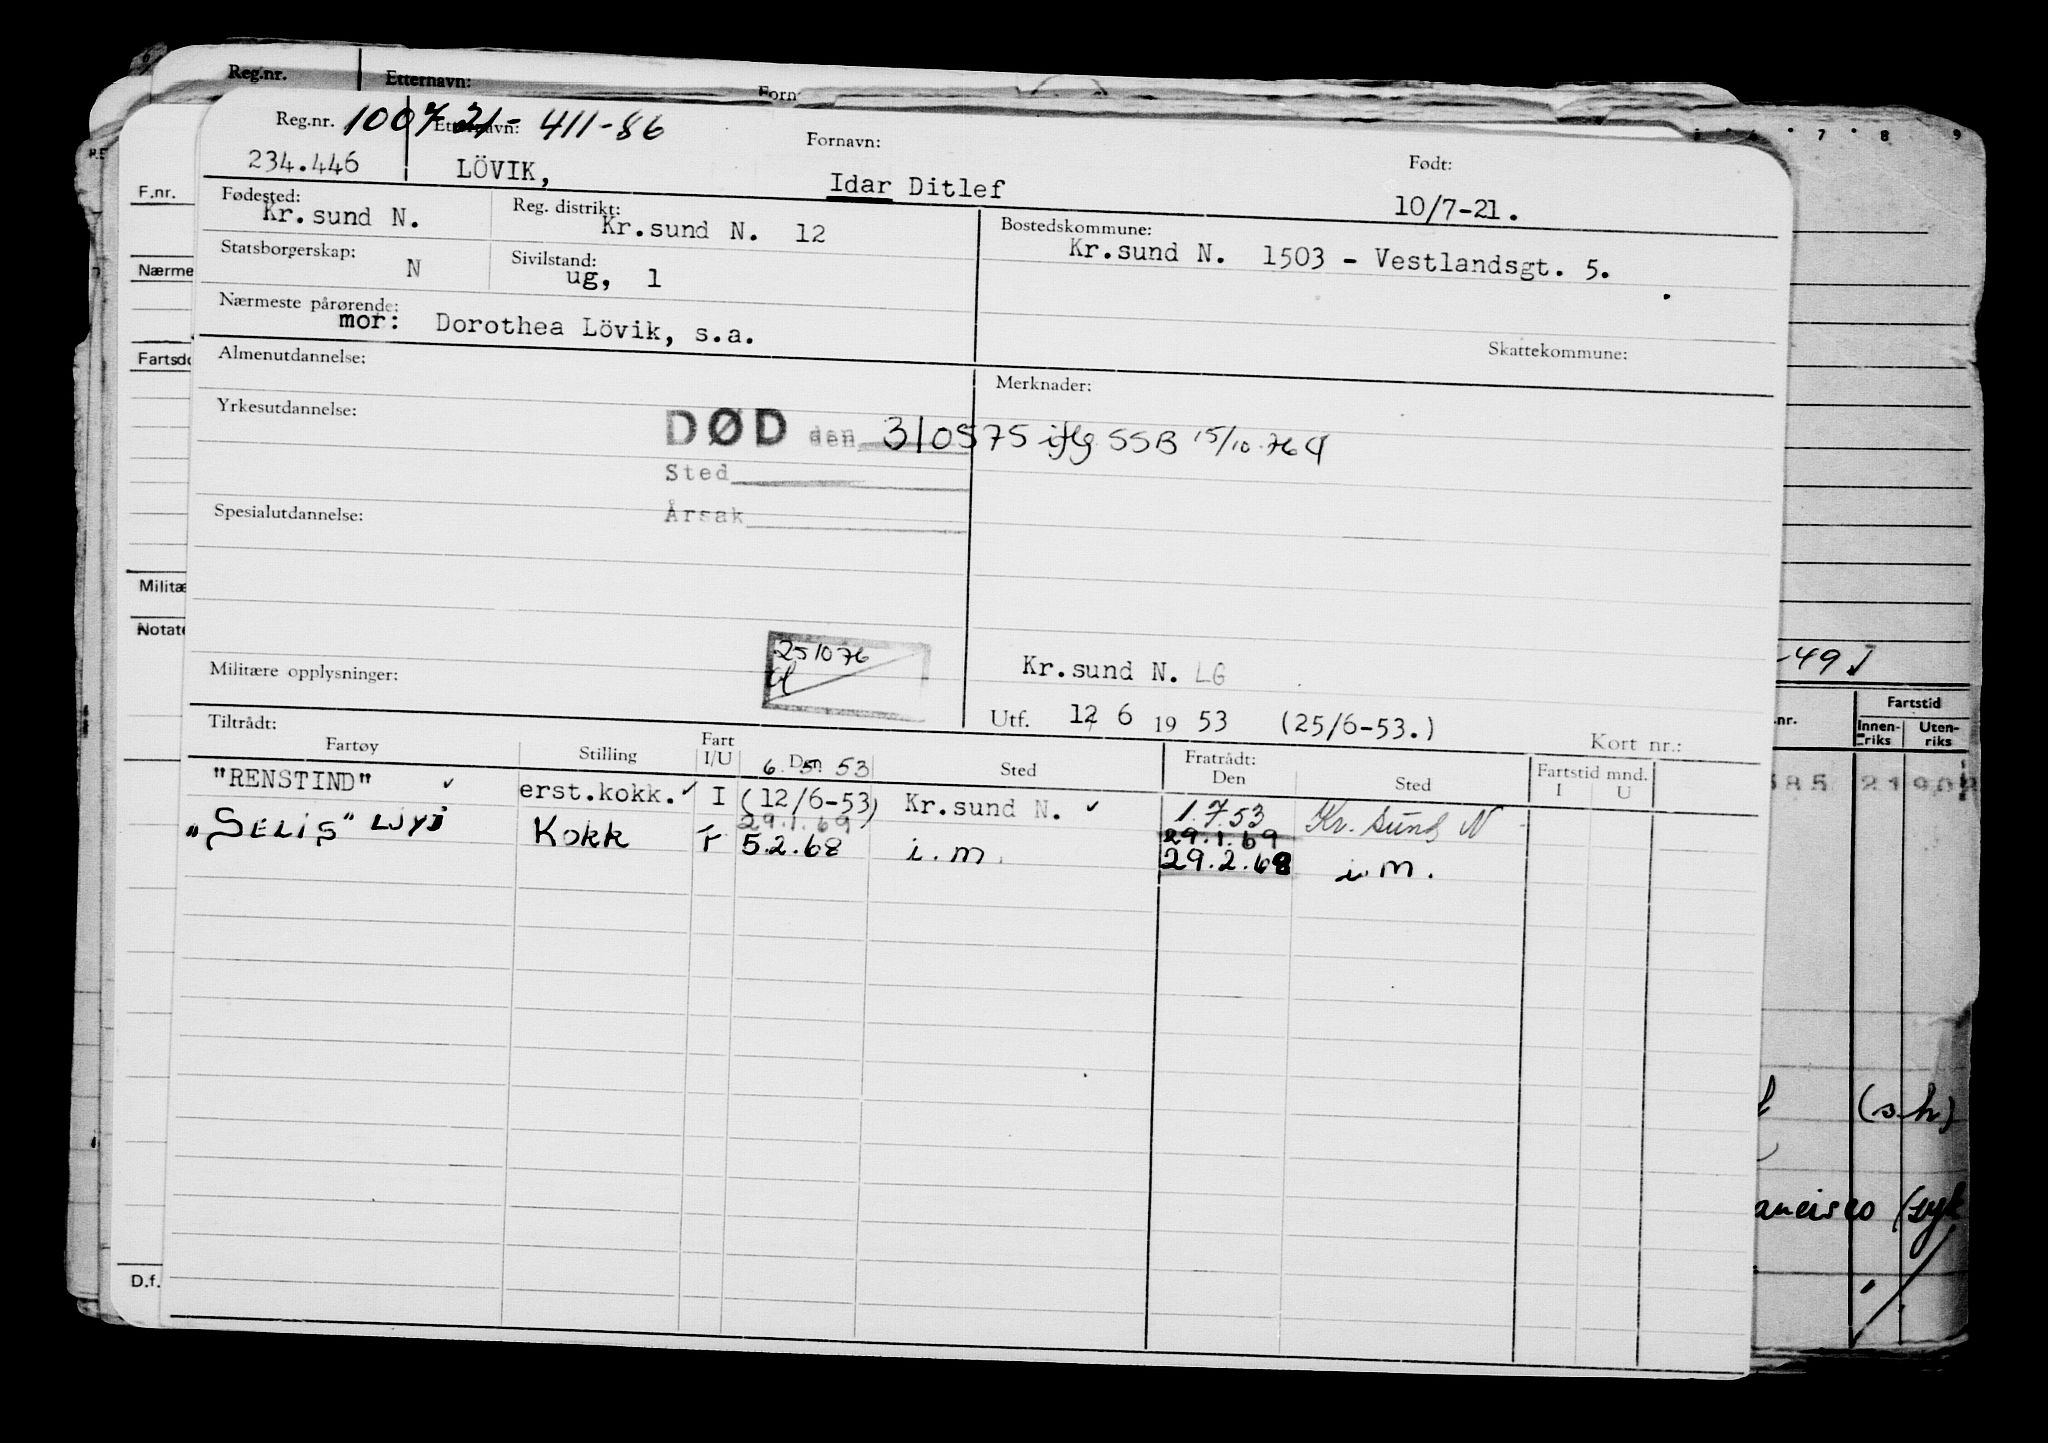 Reg.nr. Etternavn: Forn
Reg.nr. 100721- 411-86 Etternavn: Fornavn: Født:
234.446 LÖVIK, Idar Ditlef 10/7-21.
Fødested: Reg. distrikt: Bostedskommune:
Kr.sund N. Kr.sund N. 12 Kr.sund N. 1503 - Vestlandsgt. 5.
Statsborgerskap: N Sivilstand: ug, 1
Nærmeste pårørende:
mor: Dorothea Lövik, s.a.
Skattekommune:
Almenutdannelse: Merknader:
Yrkesutdannelse:
DØD den 310575 iflg SSB 15/10-76
Sted
Årsak
Spesialutdannelse:
251076
Militære opplysninger: Kr.sund N. LG
Utf. 12 6 1953 (25/6-53.) Kort nr.:
Tiltrådt: Fratrådt:
Fartøy Stilling Fart I/U Den Sted Den Sted Fartstid mnd. I U
6. 5. 53
"RENSTIND" erst.kokk. I (12/6-53) Kr.sund N. 1.7.53 Kr. sund N
29.1.69 29.1.69
"SELIS" LJYJ Kokk F 5.2.68 i.m. 29.2.68 i.m.
F.nr.
Nærme
Fartsdo
Militæ
Notate
D.f.
7 8 9
-49
.nr. Fartstid
Innen-riks Uten-riks
385 21902
(s.h)
ancisco (syk